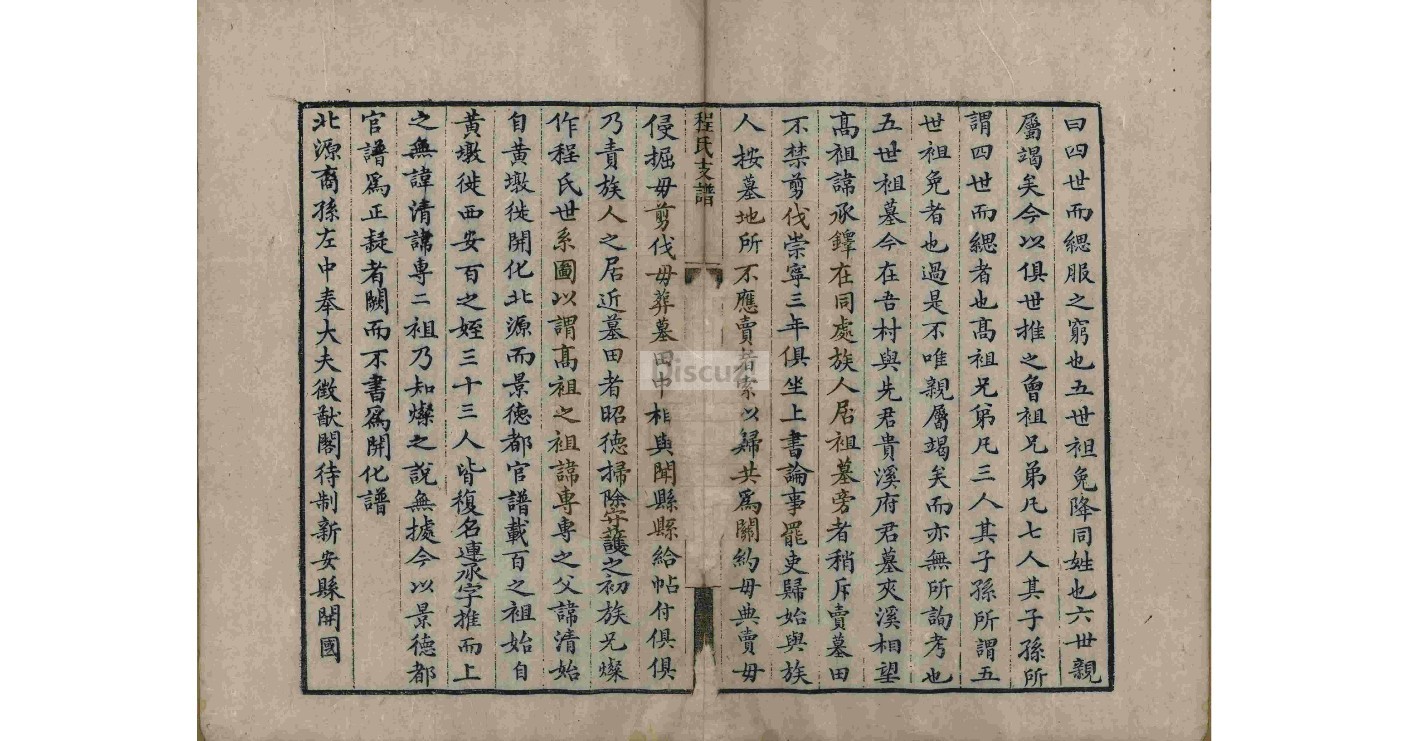 曰四世而緦服之窮也五世袒免降同姓也六世親
屬竭矣今以俱世推之曾祖兄弟凡七人其子孫所
謂四世而緦者也髙祖兄弟凡三人其子孫所謂五
世袒免者也過是不唯親屬竭矣而亦無所詢考也
五世祖墓今在吾村與先君貴溪府君墓夾溪相望
髙祖諱承鐸在同處族人居祖墓旁者稍斥賣墓田
不禁剪伐崇寧三年俱坐上書論事罷吏歸始與族
人按墓地所不應賣者索以歸共爲關約毋典賣毋
程氏支譜
侵掘毋剪伐毋葬墓田中相與聞縣縣給帖付俱俱
乃責族人之居近墓田者昭德掃除守護之初族兄燦
作程氏世系圖以謂髙祖之祖諱専専之父諱清始
自黄墩徙開化北源而景德都官譜載百之祖始自
黄墩徙西安百之姪三十三人皆複名連承字推而上
之無諱清諱專二祖乃知燦之說無據今以景德都
官譜爲正疑者闕而不書爲開化譜
北源裔孫左中奉大夫徽猷閣待制新安縣開國
Discuz!